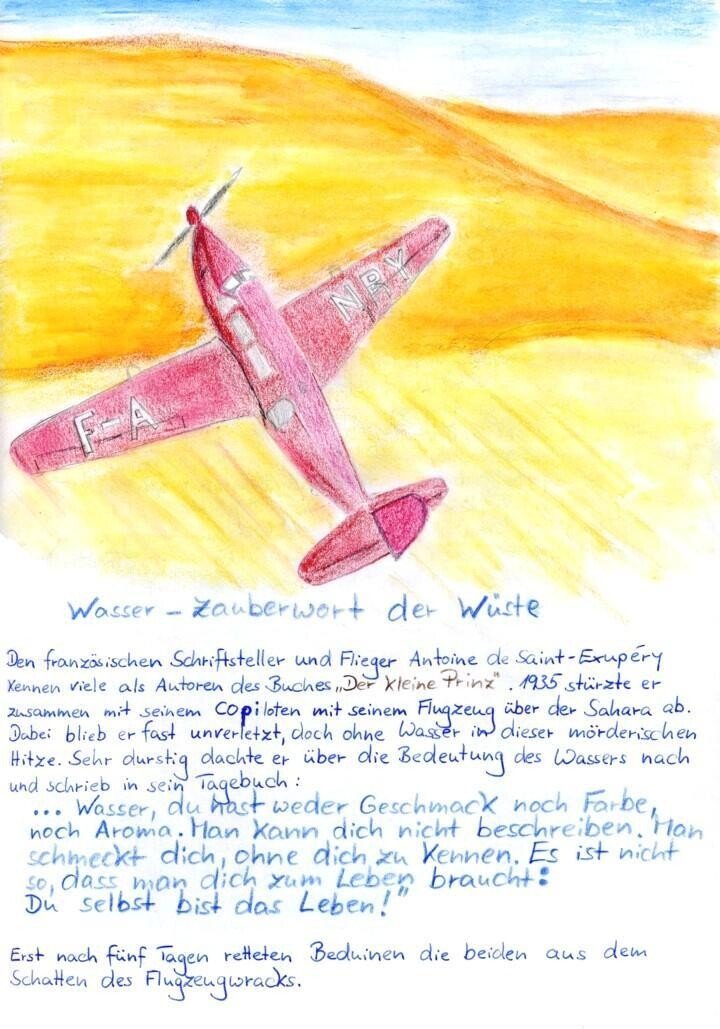 NRY
F-A
Wasser – Zauberwort der Wüste
Den französischen Schriftsteller und Flieger Antoine de Saint-Exupéry
kennen viele als Autoren des Buches „Der kleine Prinz". 1935 stürzte er
zusammen mit seinem Copiloten mit seinem Flugzeug über der Sahara ab.
Dabei blieb er fast unverletzt, doch ohne Wasser in dieser mörderischen
Hitze. Sehr durstig dachte er über die Bedeutung des Wassers nach
und schrieb in sein Tagebuch:
... Wasser, du hast weder Geschmack noch Farbe,
noch Aroma. Man kann dich nicht beschreiben. Man
schmeckt dich, ohne dich zu kennen. Es ist nicht
so, dass man dich zum Leben braucht:
Du selbst bist das Leben!"
Erst nach fünf Tagen retteten Beduinen die beiden aus dem
Schatten des Flugzeugwracks.